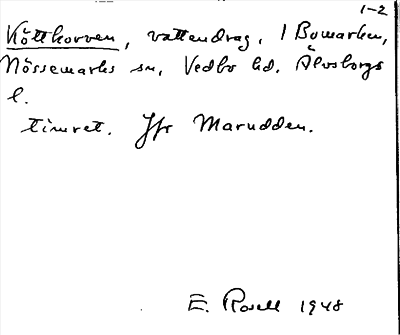 1-2
Köttkorven, vattendrag, i Bomarken,
Nössemarks sn, Vedbo hd. Älvsborgs
l.
timret. Jfr Marudden.
E. Rosell 1948